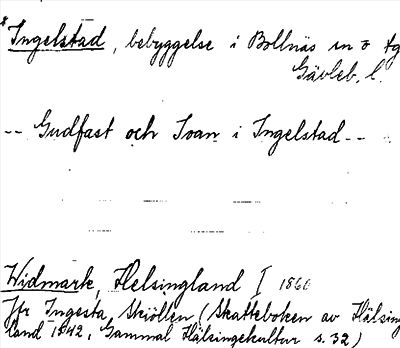 * Ingelstad, bebyggelse i Bollnäs sn o tg
Gävleb. l.
-- Gudfast och Ivan i Ingelstad --
Widmark, Helsingland I 1860
Jfr Ingesta, Skiöllen (Skatteboken av Hälsing
land 1542, Gammal Hälsingekultur s. 32)